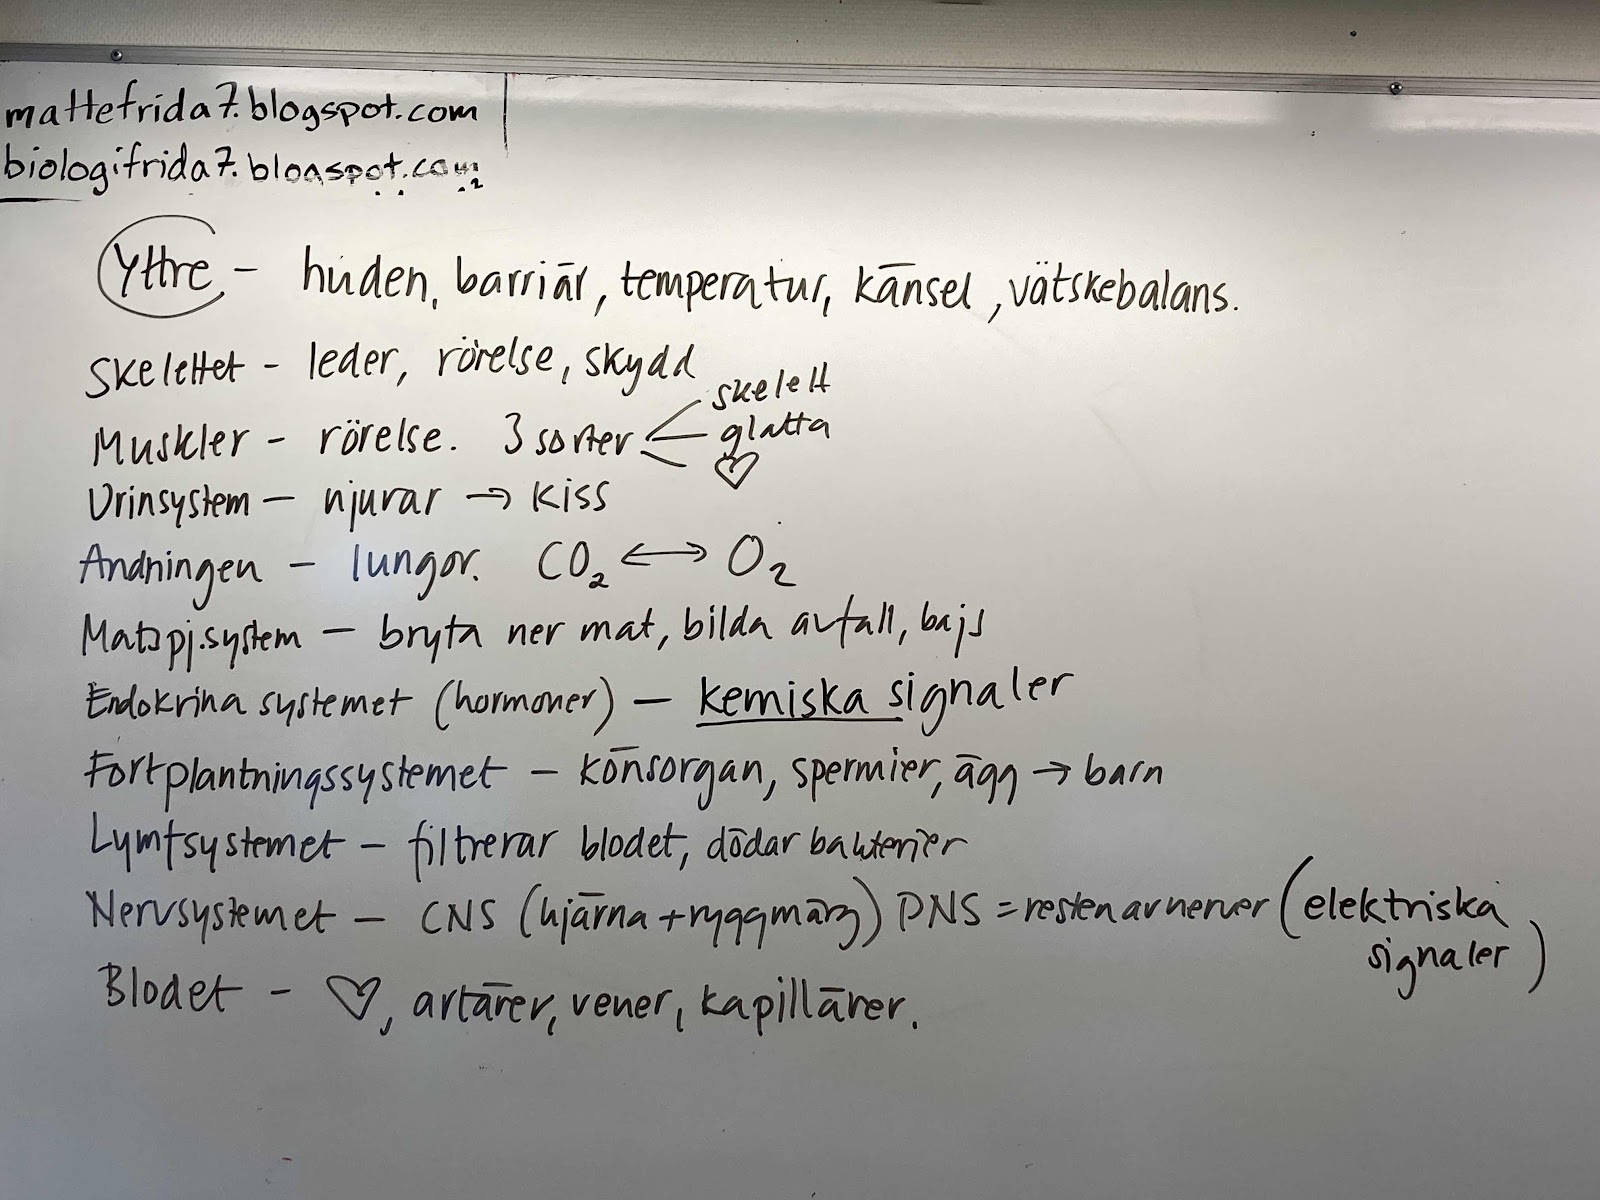 mattefrida7.blogspot.com
biologifrida7.blogspot.com
Yttre - huden, barriär, temperatur, känsel, vätskebalans.
Skelettet - leder, rörelse, skydd
Muskler - rörelse. 3 sorter
skelett
glatta
♡
Urinsystem - njurar → kiss
Andningen - lungor. CO₂ ↔ O₂
Matspj.system - bryta ner mat, bilda avfall, bajs
Endokrina systemet (hormoner) - kemiska signaler
Fortplantningssystemet - könsorgan, spermier, ägg → barn
Lymfsystemet - filtrerar blodet, dödar bakterier
Nervsystemet - CNS (hjärna + ryggmärg) PNS = resten av nerver (elektriska
signaler)
Blodet - ♡, artärer, vener, kapillärer.